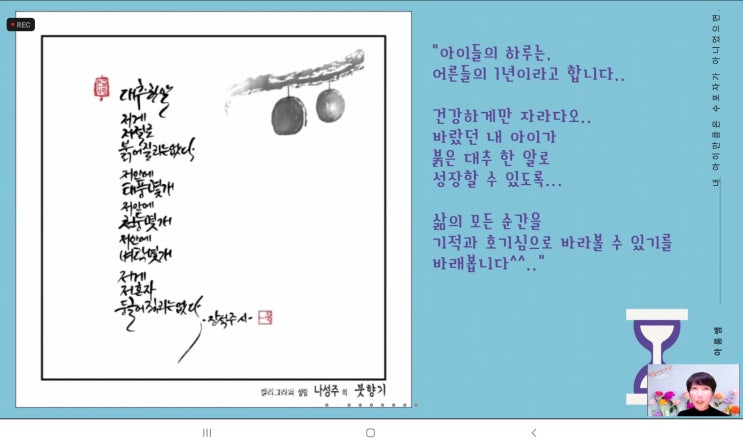 REC
대추 한 알
저게
저절로
붉어질 리는 없다.
저 안에
태풍 몇 개
저 안에
천둥 몇 개
저 안에
벼락 몇 개
저게
저 혼자
둥글어질 리는 없다.
- 장석주 시 -
캘리그라피 쉼터 나성주 의 붓향기
"아이들의 하루는,
어른들의 1년이라고 합니다..
건강하게만 자라다오..
바랐던 내 아이가
붉은 대추 한 알로
성장할 수 있도록...
삶의 모든 순간을
기적과 호기심으로 바라볼 수 있기를
바래봅니다^^.."
내 아이만큼은 수포자가 아니었으면.